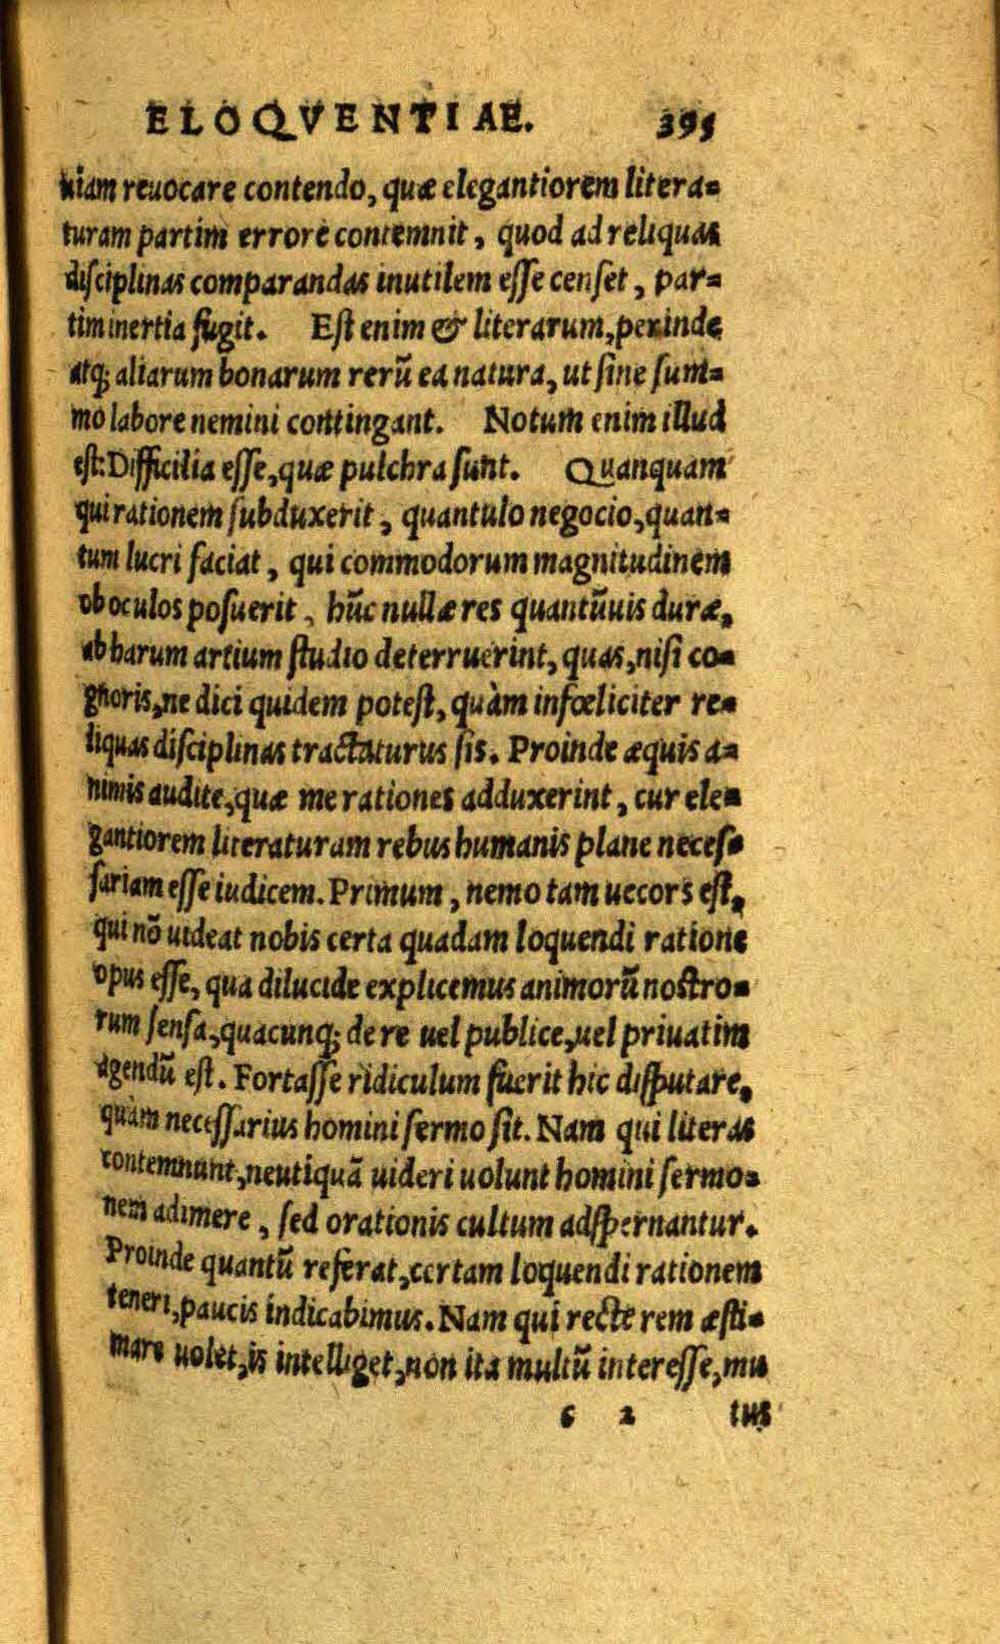 ELOQVENTIAE. 395
uiam reuocare contendo, quæ elegantiorem litera=
turam partim errore contemnit, quod ad reliquas
disciplinas comparandas inutilem esse censet, par=
tim inertia fugit. Est enim & literarum, perinde
atq; aliarum bonarum rerū ea natura, ut sine sum=
mo labore nemini contingant. Notum enim illud
est: Difficilia esse, quæ pulchra sunt. Quanquam
qui rationem subduxerit, quantulo negocio, quan=
tum lucri faciat, qui commodorum magnitudinem
ob oculos posuerit, hūc nullæ res quantūuis duræ,
ab harum artium studio deterruerint, quas, nisi co=
gnoris, ne dici quidem potest, quàm infœliciter re=
liquas disciplinas tractaturus sis. Proinde æquis a=
nimis audite, quæ me rationes adduxerint, cur ele=
gantiorem literaturam rebus humanis plane neces=
sariam esse iudicem. Primum, nemo tam uecors est,
qui nō uideat nobis certa quadam loquendi ratione
opus esse, qua dilucide explicemus animorū nostro=
rum sensa, quacunq; de re uel publice, uel priuatim
agendū est. Fortasse ridiculum fuerit hic disputare,
quàm necessarius homini sermo sit. Nam qui literas
contemnunt, neutiquā uideri uolunt homini sermo=
nem adimere, sed orationis cultum adspernantur.
Proinde quantū referat, certam loquendi rationem
teneri, paucis indicabimus. Nam qui recte rem æsti=
mare uolet, is intelliget, non ita multū interesse, mu
c 2 tus